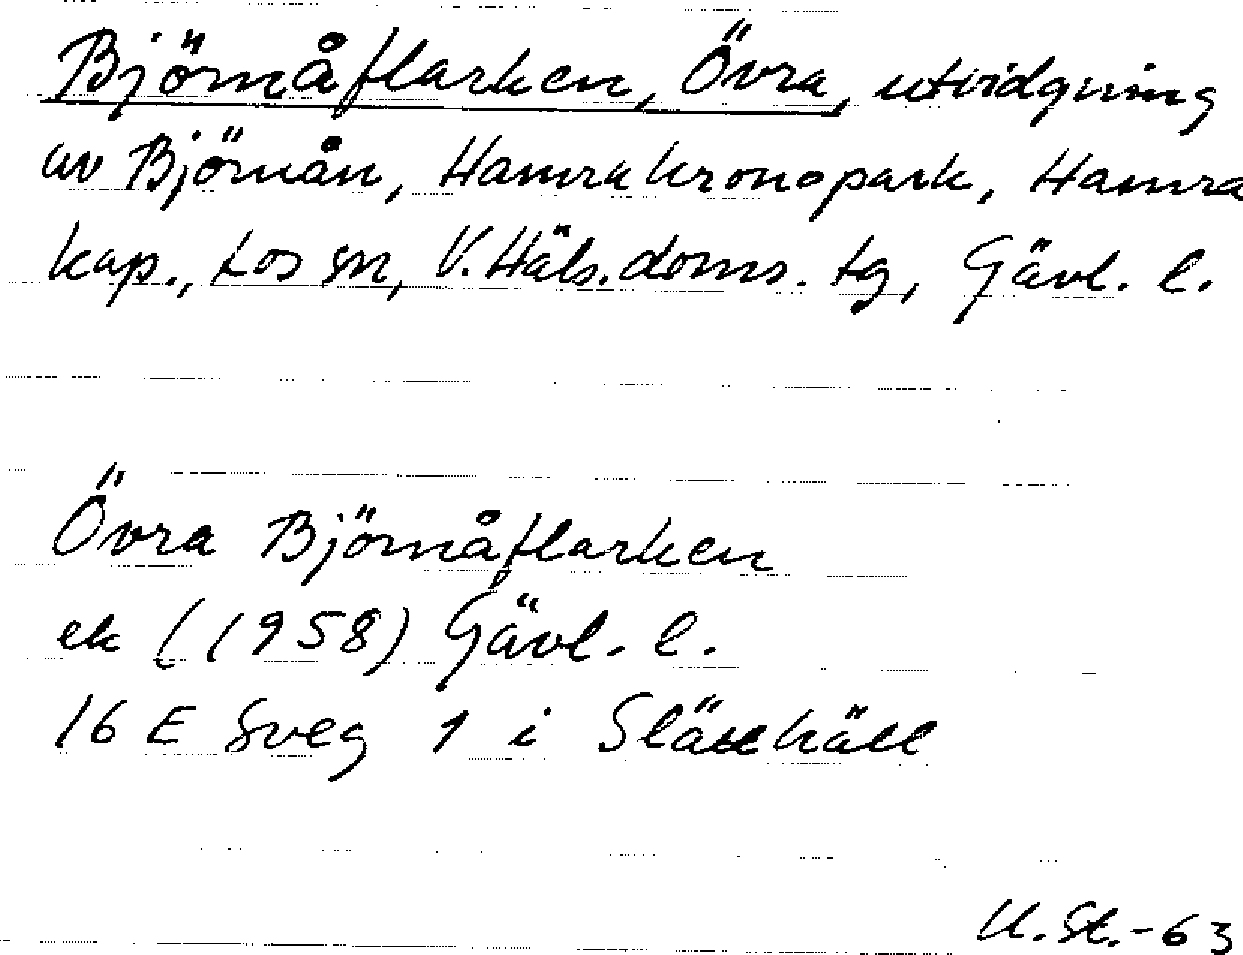 Björnåflarken, Övra, utvidgning
av Björnån, Hamra kronopark, Hamra
kap., Los sn, V. Häls. doms. tg, Gävl. l.
Övra Björnåflarken
ek (1958) Gävl. l.
16 E Sveg 1 i Slätthäll
U. St. -63